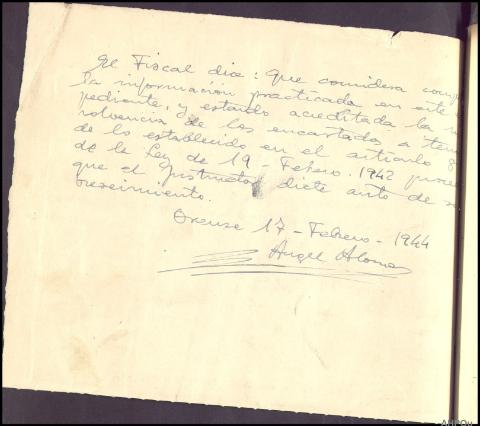 El Fiscal dice: Que considera comp
la información practicada en este e
pediente, y estando acreditada la in
solvencia de los encartados a teno
de lo establecido en el artículo 8
de la Ley de 19 - Febero. 1942 proce
que el Instructor dicte auto de so
breseimiento.
Orense 17 - Febrero - 1944
Angel Alonso